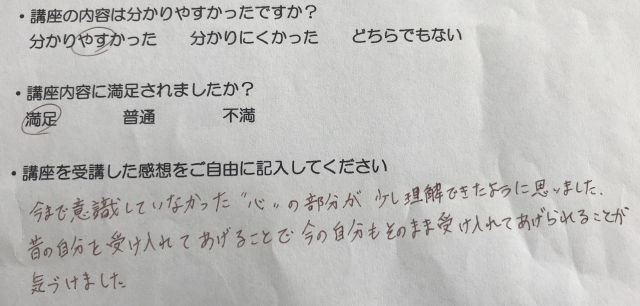 ・講座の内容は分かりやすかったですか？
分かりやすかった 分かりにくかった どちらでもない
・講座内容に満足されましたか？
満足 普通 不満
・講座を受講した感想をご自由に記入してください
今まで意識していなかった"心"の部分が少し理解できたように思いました.
昔の自分を受け入れてあげることで今の自分もそのまま受け入れてあげられることが
気づけました